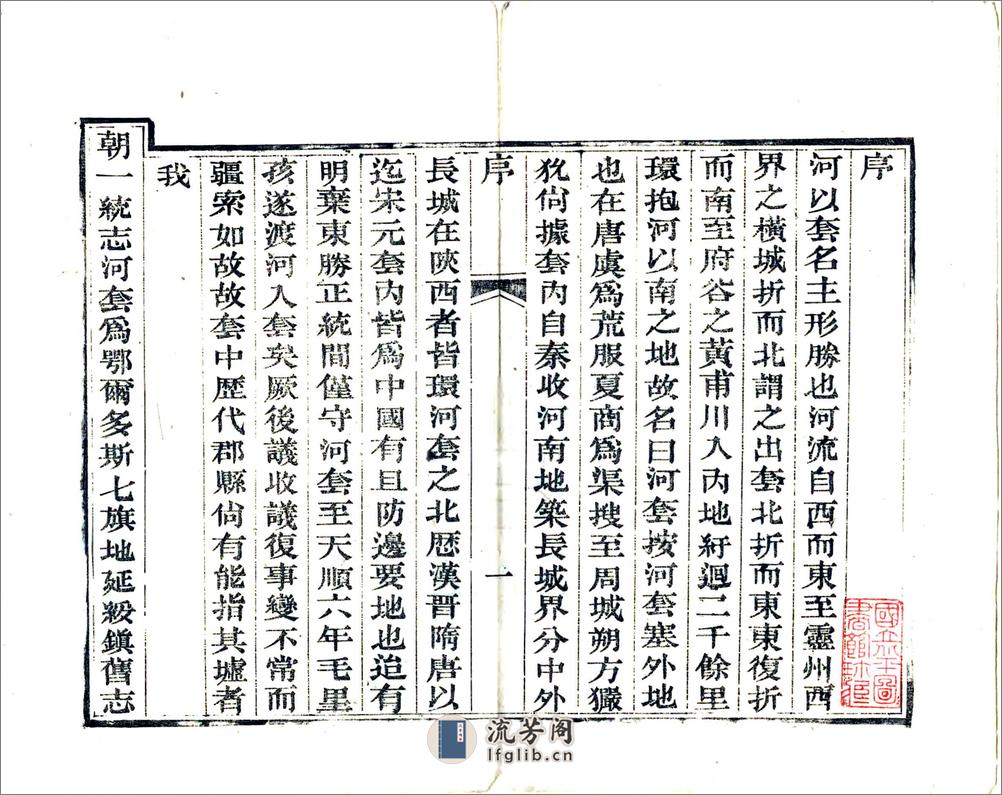 序
河以套名主形勝也河流自西而東至靈州西
界之橫城折而北謂之出套北折而東東復折
而南至府谷之黃甫川入內地紆迴二千餘里
環抱河以南之地故名曰河套按河套塞外地
也在唐虞爲荒服夏商爲渠搜至周城朔方玁
狁尙據套內自秦收河南地築長城界分中外
序
一
長城在陝西者皆環河套之北歷漢晉隋唐以
迄宋元套內皆爲中國有且防邊要地也迨有
明棄東勝正統間僅守河套至天順六年毛里
孩遂渡河入套矣厥後議收議復事變不常而
疆索如故故套中歷代郡縣尙有能指其墟者
我
朝一統志河套爲鄂爾多斯七旗地延綏鎭舊志
國立北平圖
書館珍藏
流芳阁
lfglib.cn